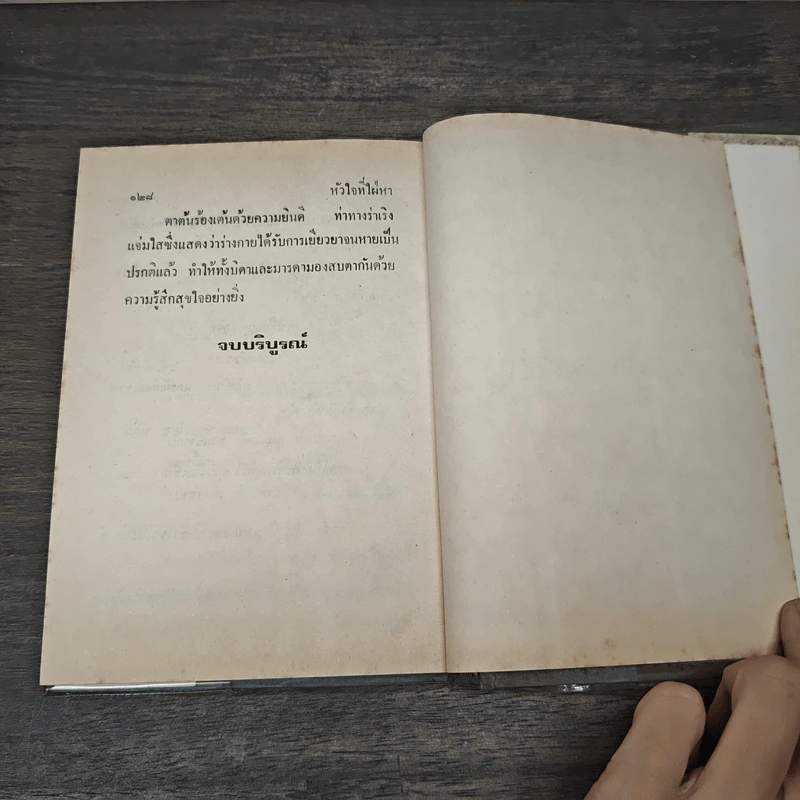 ๑๒๘ หัวใจที่ใฝ่หา
ตาต้นร้องเต้นด้วยความยินดี ท่าทางร่าเริง
แจ่มใสซึ่งแสดงว่าร่างกายได้รับการเยียวยาจนหายเป็น
ปรกติแล้ว ทำให้ทั้งบิดาและมารดามองสบตากันด้วย
ความรู้สึกสุขใจอย่างยิ่ง
จบบริบูรณ์